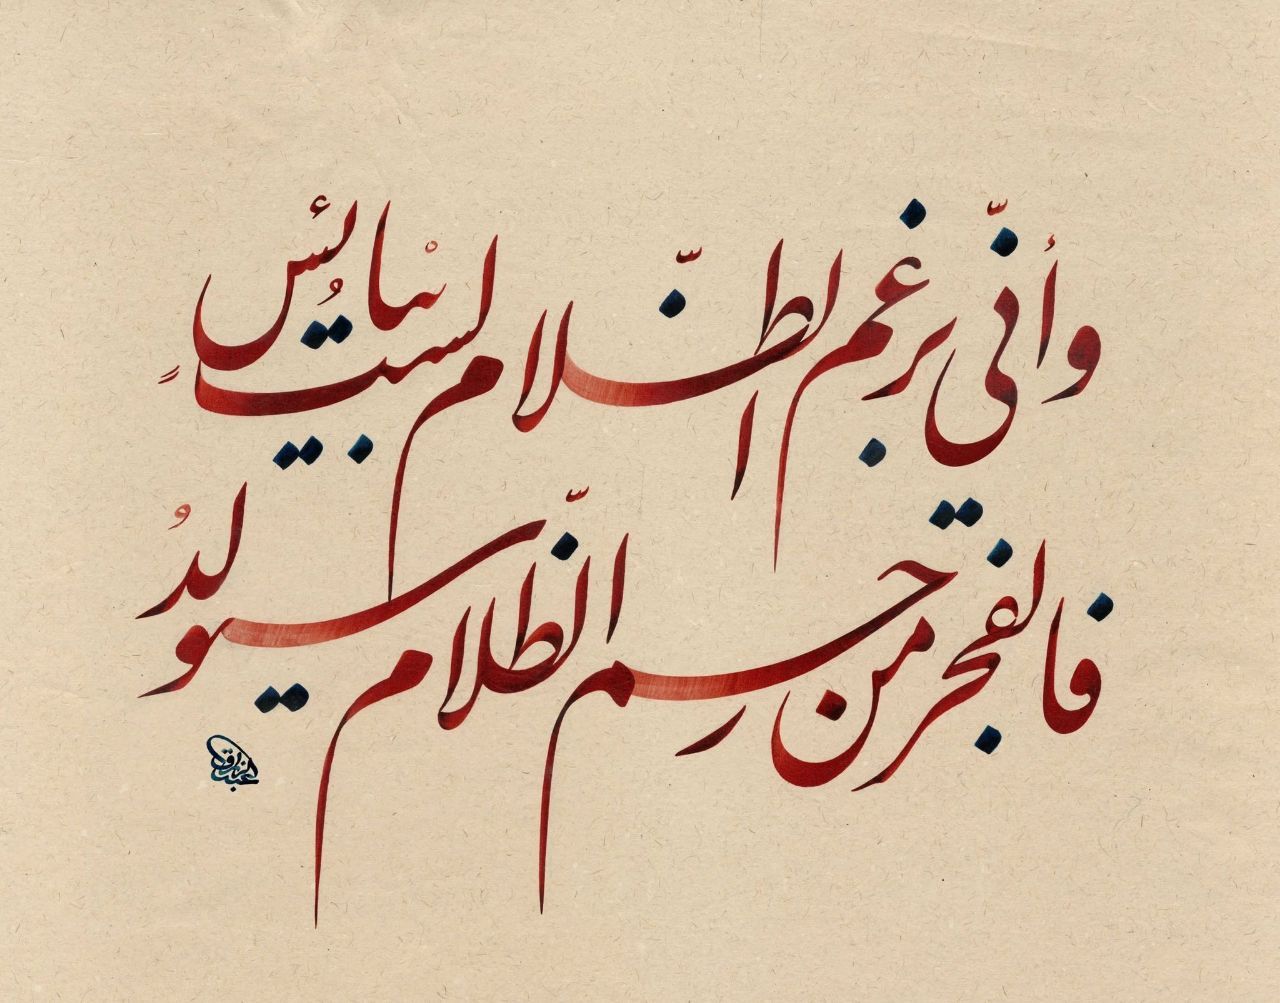 وأنّي برغم الظّلام لستُ بيائسٍ
فالفجر من رحم الظّلام سيولدُ